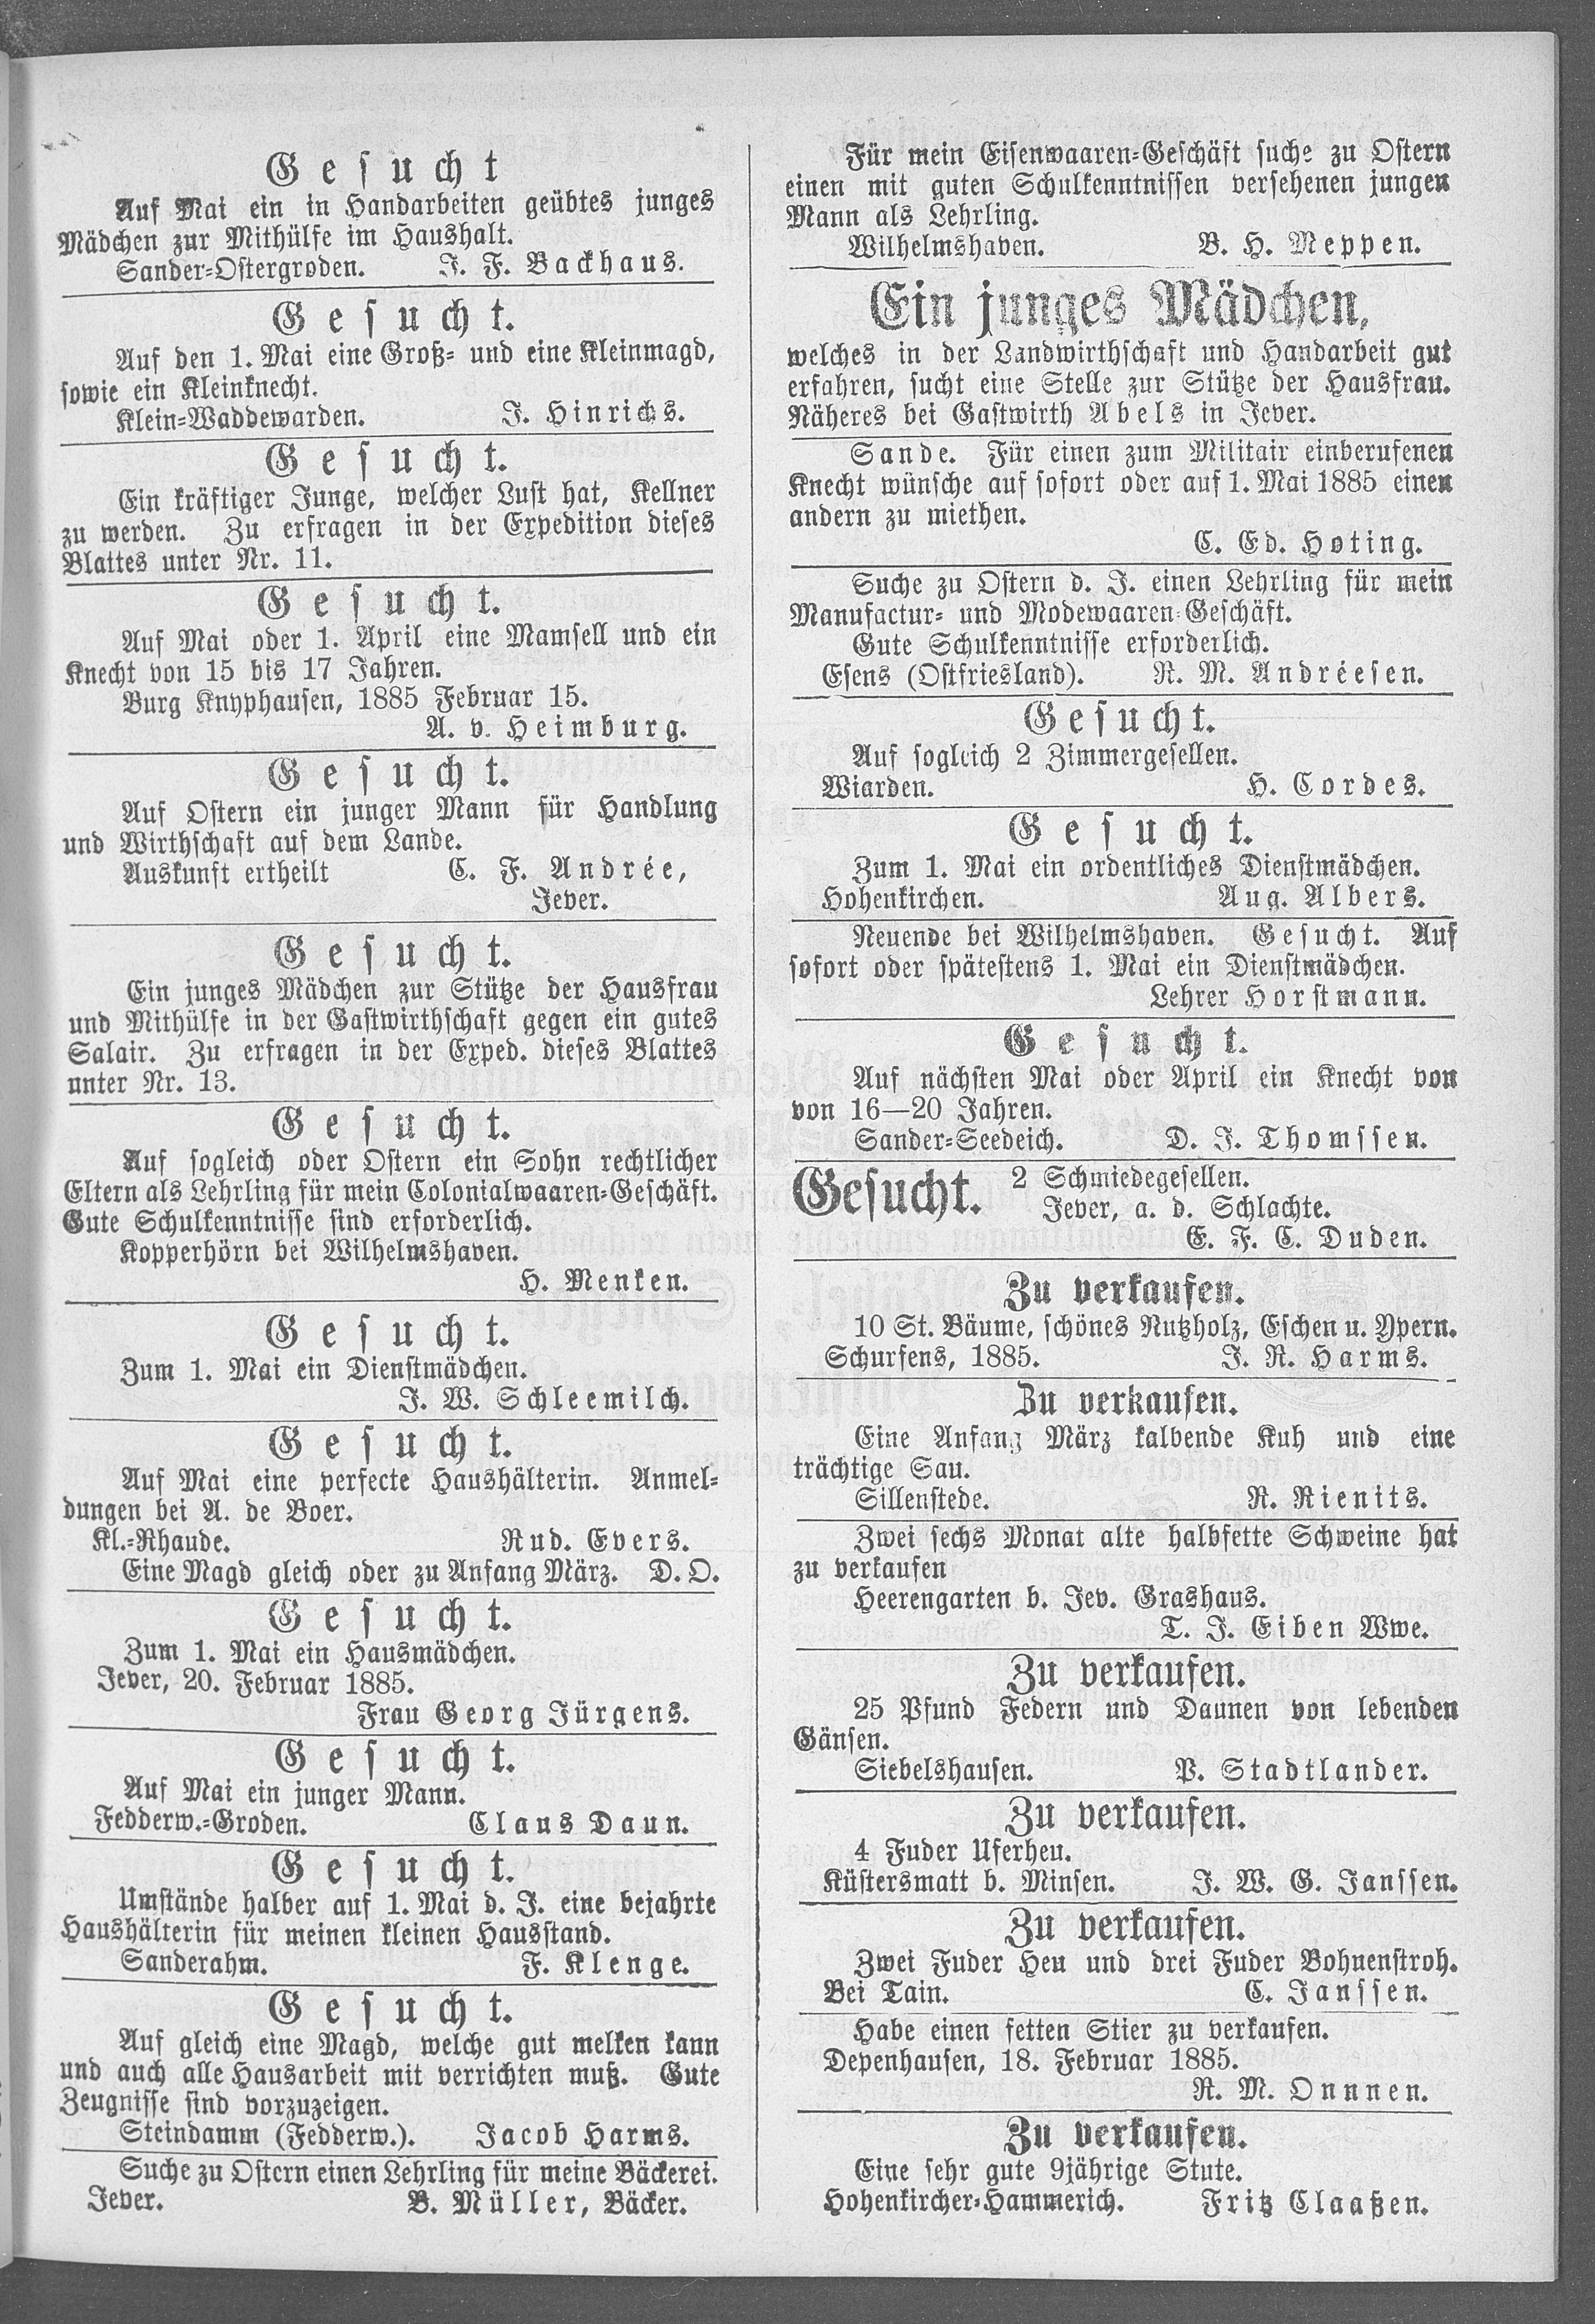 Gesucht
Auf Mai ein in Handarbeiten geübtes junges
Mädchen zur Mithülfe im Haushalt.
Sander-Ostergroden. J. F. Backhaus.
Gesucht.
Auf den 1. Mai eine Groß- und eine Kleinmagd,
sowie ein Kleinknecht.
Klein-Waddewarden. J. Hinrichs.
Gesucht.
Ein kräftiger Junge, welcher Lust hat, Kellner
zu werden. Zu erfragen in der Expedition dieses
Blattes unter Nr. 11.
Gesucht.
Auf Mai oder 1. April eine Mamsell und ein
Knecht von 15 bis 17 Jahren.
Burg Knyphausen, 1885 Februar 15.
A. v. Heimburg.
Gesucht.
Auf Ostern ein junger Mann für Handlung
und Wirthschaft auf dem Lande.
Auskunft ertheilt C. F. Andrée,
Jever.
Gesucht.
Ein junges Mädchen zur Stütze der Hausfrau
und Mithülfe in der Gastwirthschaft gegen ein gutes
Salair. Zu erfragen in der Exped. dieses Blattes
unter Nr. 13.
Gesucht.
Auf sogleich oder Ostern ein Sohn rechtlicher
Eltern als Lehrling für mein Colonialwaaren-Geschäft.
Gute Schulkenntnisse sind erforderlich.
Kopperhörn bei Wilhelmshaven.
H. Menken.
Gesucht.
Zum 1. Mai ein Dienstmädchen.
J. W. Schleemilch.
Gesucht.
Auf Mai eine perfecte Haushälterin. Anmel-
dungen bei A. de Boer.
Kl.-Rhaude. Rud. Evers.
Eine Magd gleich oder zu Anfang März. D. O.
Gesucht.
Zum 1. Mai ein Hausmädchen.
Jever, 20. Februar 1885.
Frau Georg Jürgens.
Gesucht.
Auf Mai ein junger Mann.
Fedderw.-Groden. Claus Daun.
Gesucht.
Umstände halber auf 1. Mai d. J. eine bejahrte
Haushälterin für meinen kleinen Hausstand.
Sanderahm. F. Klenge.
Gesucht.
Auf gleich eine Magd, welche gut melken kann
und auch alle Hausarbeit mit verrichten muß. Gute
Zeugnisse sind vorzuzeigen.
Steindamm (Fedderw.). Jacob Harms.
Suche zu Ostern einen Lehrling für meine Bäckerei.
Jever. B. Müller, Bäcker.
Für mein Eisenwaaren-Geschäft suche zu Ostern
einen mit guten Schulkenntnissen versehenen jungen
Mann als Lehrling.
Wilhelmshaven. B. H. Meppen.
Ein junges Mädchen,
welches in der Landwirthschaft und Handarbeit gut
erfahren, sucht eine Stelle zur Stütze der Hausfrau.
Näheres bei Gastwirth Abels in Jever.
Sande. Für einen zum Militair einberufenen
Knecht wünsche auf sofort oder auf 1. Mai 1885 einen
andern zu miethen.
C. Ed. Hoting.
Suche zu Ostern d. J. einen Lehrling für mein
Manufactur- und Modewaaren-Geschäft.
Gute Schulkenntnisse erforderlich.
Esens (Ostfriesland). R. M. Andréesen.
Gesucht.
Auf sogleich 2 Zimmergesellen.
Wiarden. H. Cordes.
Gesucht.
Zum 1. Mai ein ordentliches Dienstmädchen.
Hohenkirchen. Aug. Albers.
Neuende bei Wilhelmshaven. Gesucht. Auf
sofort oder spätestens 1. Mai ein Dienstmädchen.
Lehrer Horstmann.
Gesucht.
Auf nächsten Mai oder April ein Knecht von
von 16—20 Jahren.
Sander-Seedeich. D. J. Thomssen.
Gesucht. 2 Schmiedegesellen.
Jever, a. d. Schlachte.
E. F. C. Duden.
Zu verkaufen.
10 St. Bäume, schönes Nutzholz, Eschen u. Ypern.
Schurfens, 1885. J. R. Harms.
Zu verkaufen.
Eine Anfang März kalbende Kuh und eine
trächtige Sau.
Sillenstede. R. Rienits.
Zwei sechs Monat alte halbfette Schweine hat
zu verkaufen
Heerengarten b. Jev. Grashaus.
T. J. Eiben Wwe.
Zu verkaufen.
25 Pfund Federn und Daunen von lebenden
Gänsen.
Siebelshausen. P. Stadtlander.
Zu verkaufen.
4 Fuder Uferheu.
Küstersmatt b. Minsen. J. W. G. Janssen.
Zu verkaufen.
Zwei Fuder Heu und drei Fuder Bohnenstroh.
Bei Tain. C. Janssen.
Habe einen fetten Stier zu verkaufen.
Depenhausen, 18. Februar 1885.
R. M. Onnnen.
Zu verkaufen.
Eine sehr gute 9jährige Stute.
Hohenkircher-Hammerich. Fritz Claaßen.